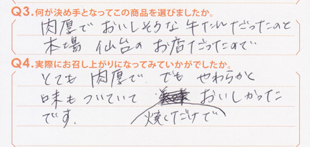 Q3.何が決め手となってこの商品を選びましたか。
肉厚でおいしそうな牛たんだったのと
本場 仙台のお店だったので
Q4.実際にお召し上がりになってみていかがでしたか。
とても肉厚で でも やわらかく
味もついていて おいしかった
です. 焼くだけで